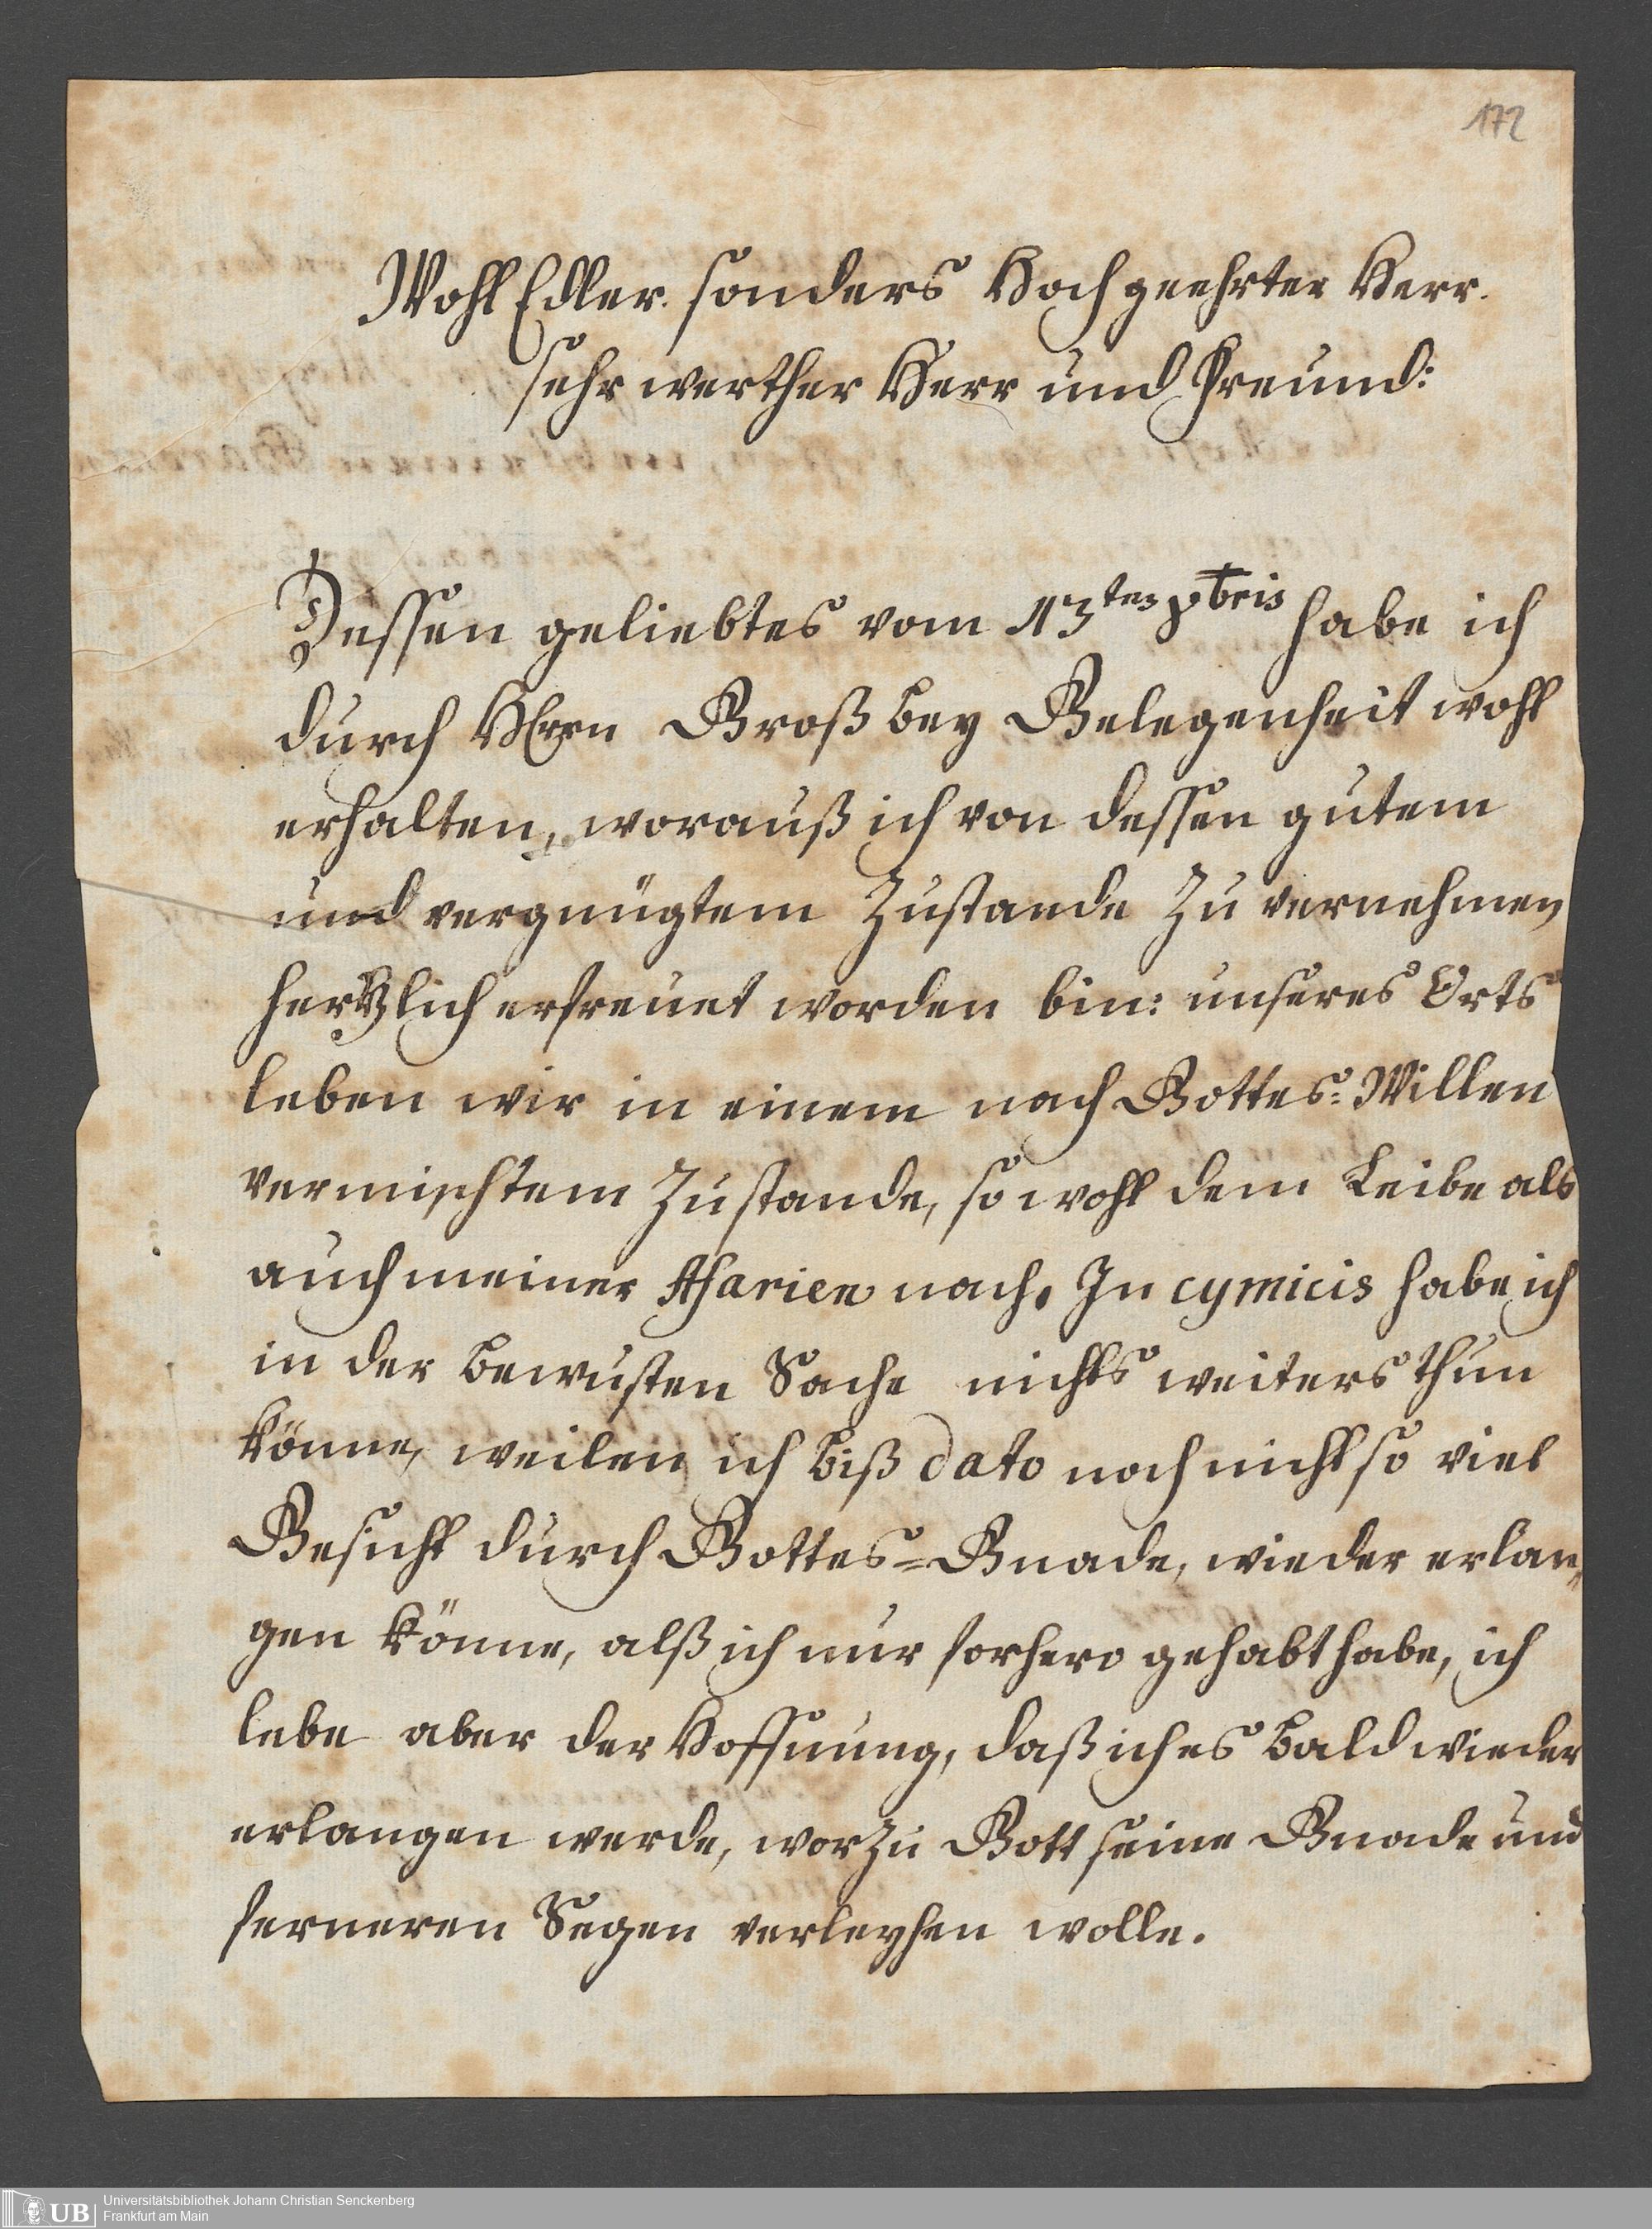 172
Wohl Edler. sonders Hochgeehrter Herr.
sehr werther Herr und Freund:
Dessen geliebtes vom 13ten xbris habe ich
durch HErrn Groß bey Gelegenheit wohl
erhalten, worauß ich von dessen gutem
und vergnügtem Zustande zu vernehmen
hertzlich erfreuet worden bin: unseres Orts
leben wir in einem nach Gottes: Willen
vermischtem Zustande, so wohl dem Leibe als
auch meiner nach. In cymicis habe ich
in der bewusten Sache nichts weiters thun
könne, weilen ich biß dato noch nicht so viel
Gesicht durch Gottes=Gnade, wieder erlan„
gen könne, alß ich nur forhero gehabt habe, ich
lebe aber der Hoffnung, daß ich es bald wieder
erlangen werde, worzu Gott seine Gnade und
ferneren Segen verleyhen wolle.
UB
Universitätsbibliothek Johann Christian Senckenberg
Frankfurt am Main